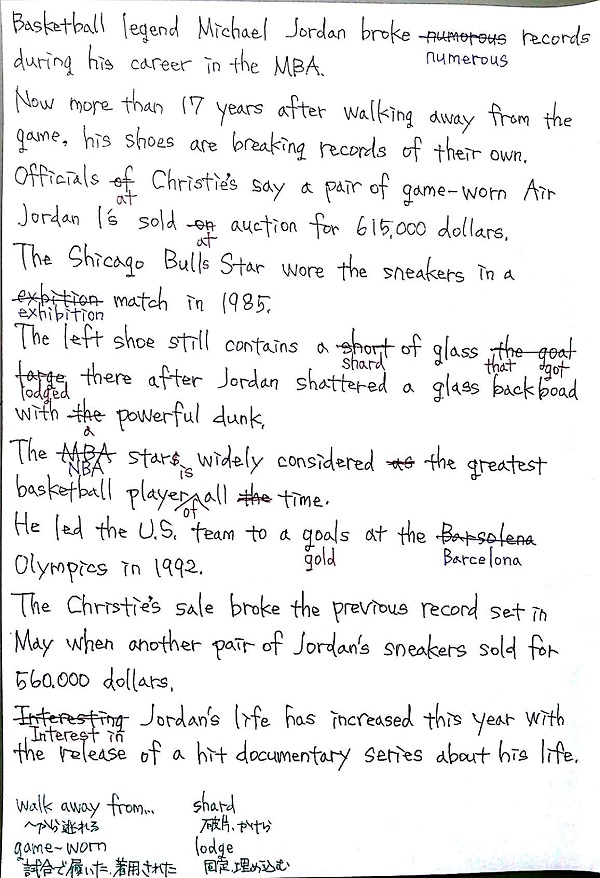 Basketball legend Michael Jordan broke numorous records
numerous
during his career in the MBA.
Now more than 17 years after walking away from the
game, his shoes are breaking records of their own.
Officials of Christie's say a pair of game-worn Air
at
Jordan 1's sold on auction for 615,000 dollars.
at
The Shicago Bulls Star wore the sneakers in a
exbition match in 1985.
exhibition
The left shoe still contains a short of glass the goat
shard that got
targe there after Jordan shattered a glass backboad
lodged
with the powerful dunk,
a
The MBA stars widely considered as the greatest
NBA is
basketball player all the time.
of
He led the U.S. team to a goals at the Barsolena
gold Barcelona
Olympics in 1992.
The Christie's sale broke the previous record set in
May when another pair of Jordan's sneakers sold for
560.000 dollars.
Interesting Jordan's life has increased this year with
Interest in
the release of a hit documentary series about his life.
walk away from... shard
〜から逃れる 破片、かけら
game-worn lodge
試合で履いた、着用された 固定、埋め込む